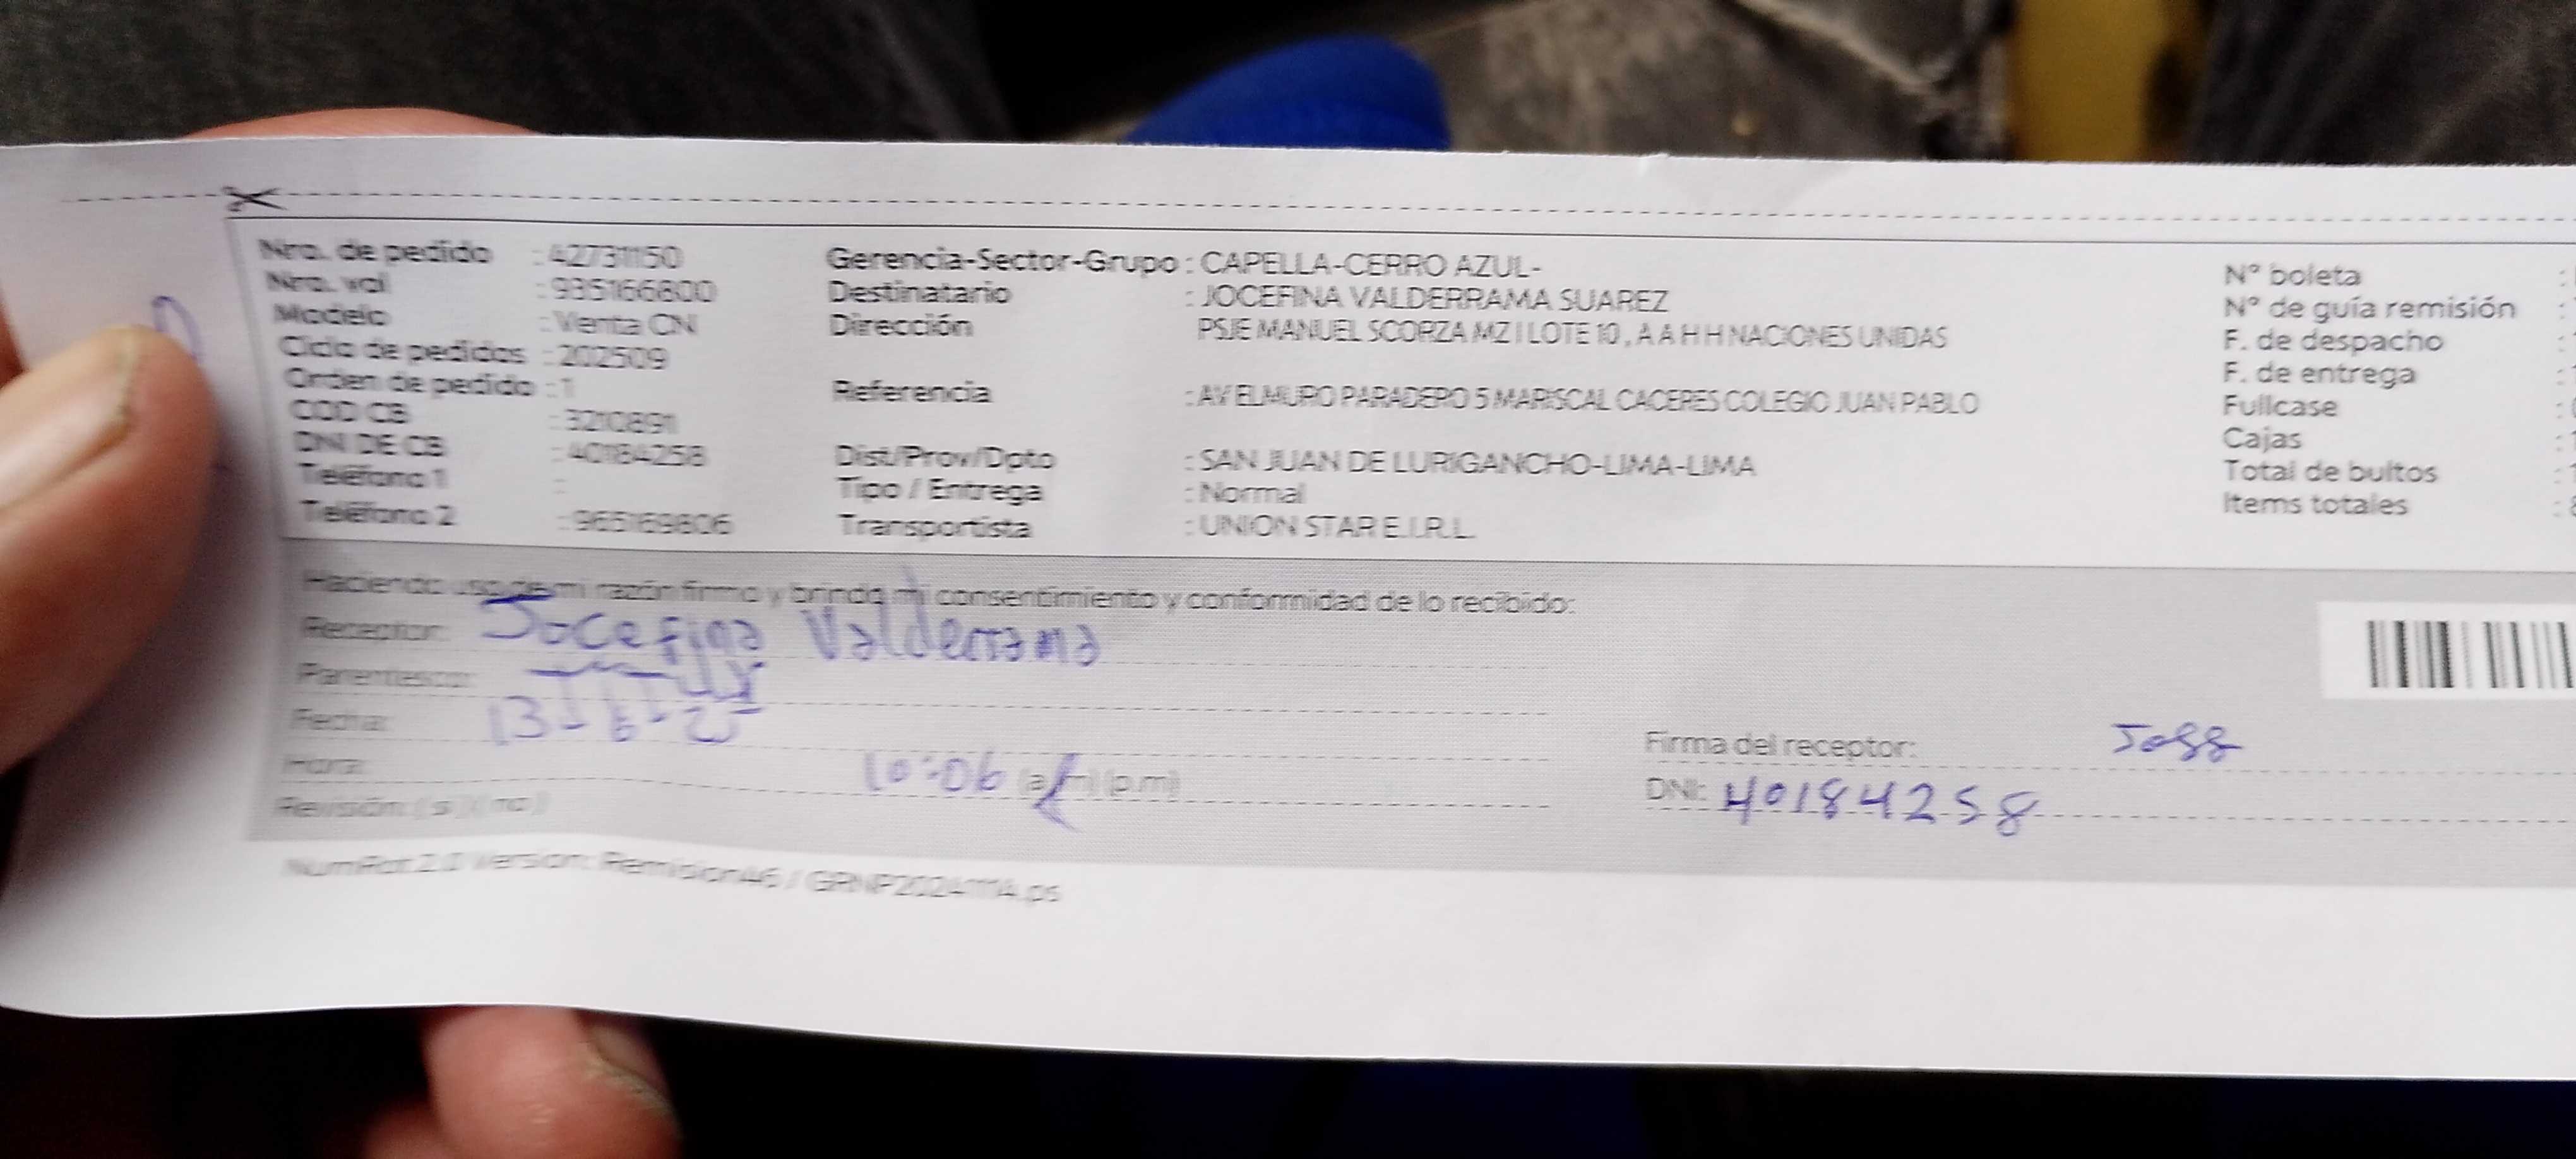 Nro. de pedido : 42731150
Nro. val : 935166800
Modelo : Venta CN
Ciclo de pedidos : 202509
Orden de pedido : 1
COD CB : 3210891
DNI DE CB : 40184258
Teléfono 1 :
Teléfono 2 : 965169806
Gerencia-Sector-Grupo : CAPELLA-CERRO AZUL-
Destinatario : JOCEFINA VALDERRAMA SUAREZ
Dirección PSJE MANUEL SCORZA MZ I LOTE 10 , A A H H NACIONES UNIDAS
Referencia : AV EL MURO PARADERO 5 MARISCAL CACERES COLEGIO JUAN PABLO
Dist/Prov/Dpto : SAN JUAN DE LURIGANCHO-LIMA-LIMA
Tipo / Entrega : Normal
Transportista : UNION STAR E.I.R.L.
N° boleta :
N° de guía remisión :
F. de despacho :
F. de entrega :
Fullcase :
Cajas :
Total de bultos :
Items totales :
Haciendo uso de mi razón firmo y brindo mi consentimiento y conformidad de lo recibido:
Receptor: Jocefina Valderrama
Parentesco:
Fecha:
Hora: 10:06 (a.m) (p.m)
Revisión: ( si ) ( no )
Firma del receptor:
DNI: 40184258
NumRot 2.0 Version: Remision46 / GRNP20241114.ps